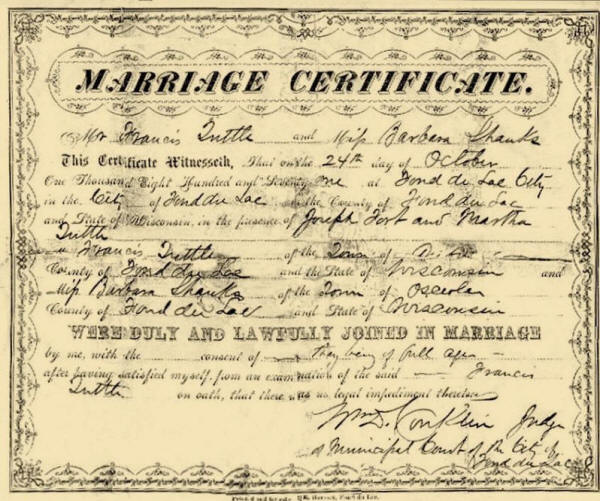 MARRIAGE CERTIFICATE.
Mr Francis Tuttle and Miss Barbara Shanks
This Certificate Witnesseth, That on the 24th day of October
One Thousand Eight Hundred and Seventy one at Fond du Lac City
in the City of Fond du Lac in the County of Fond du Lac
and State of Wisconsin, in the presence of Joseph Fort and Martha
Tuttle
Francis Tuttle of the Town of
County of Fond du Lac and the State of Wisconsin and
Miss Barbara Shanks of the Town of Osceola
County of Fond du Lac and State of Wisconsin
WERE DULY AND LAWFULLY JOINED IN MARRIAGE
by me, with the consent of they being of full age
after having satisfied myself, from an examination of the said Francis
Tuttle on oath, that there was no legal impediment thereto
Wm D. Conklin Judge
of Municipal Court of the City of
Fond du Lac
Printed and for sale